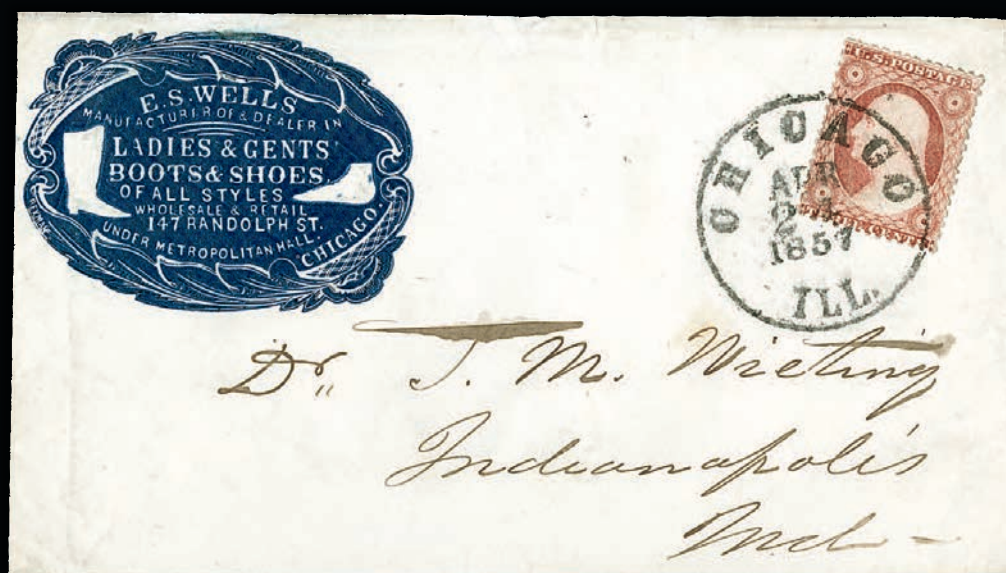 E.S. WELLS
MANUFACTURER OF & DEALER IN
LADIES & GENTS'
BOOTS & SHOES
OF ALL STYLES
WHOLESALE & RETAIL
147 RANDOLPH ST.
UNDER METROPOLITAN HALL.
CHICAGO.
U.S. POSTAGE
CHICAGO
APR
1857
ILL.
Dr. T. M. Wieting
Indianapolis
Ind